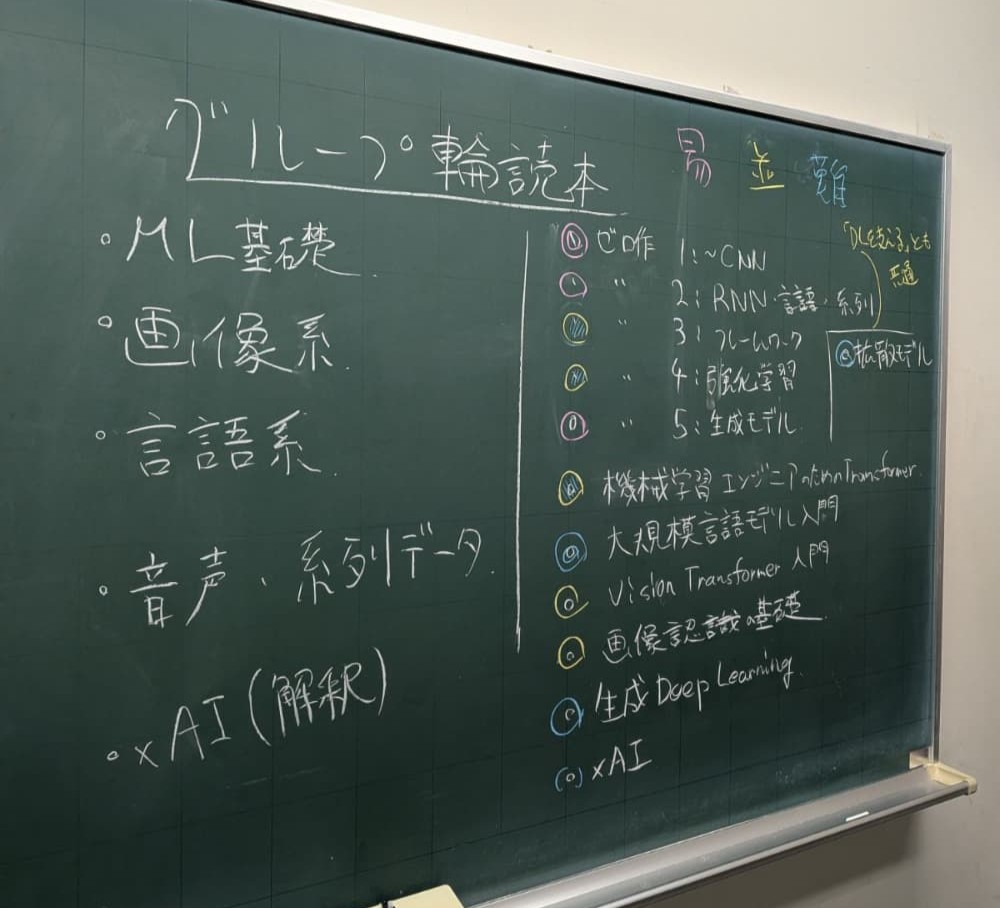 グループ輪読本
易 並 難
・ML基礎
・画像系
・言語系
・音声・系列データ
・xAI(解釈)
ゼロ作 1:~CNN
〃 2:RNN・言語・系列
〃 3:フレームワーク
〃 4:強化学習
〃 5:生成モデル
「DLを支える」とも
共通
拡散モデル
機械学習エンジニアのためのTransformer
大規模言語モデル入門
Vision Transformer 入門
画像認識の基礎
生成 Deep Learning
xAI